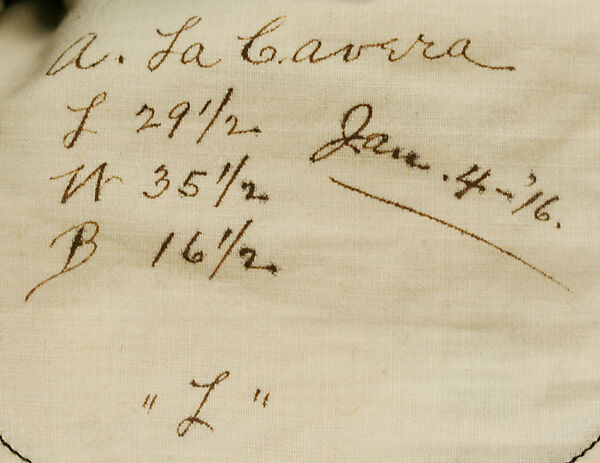 A. La Cavera
L 29 1/2
W 35 1/2
B 16 1/2
Jan. 4-'16.
"L"